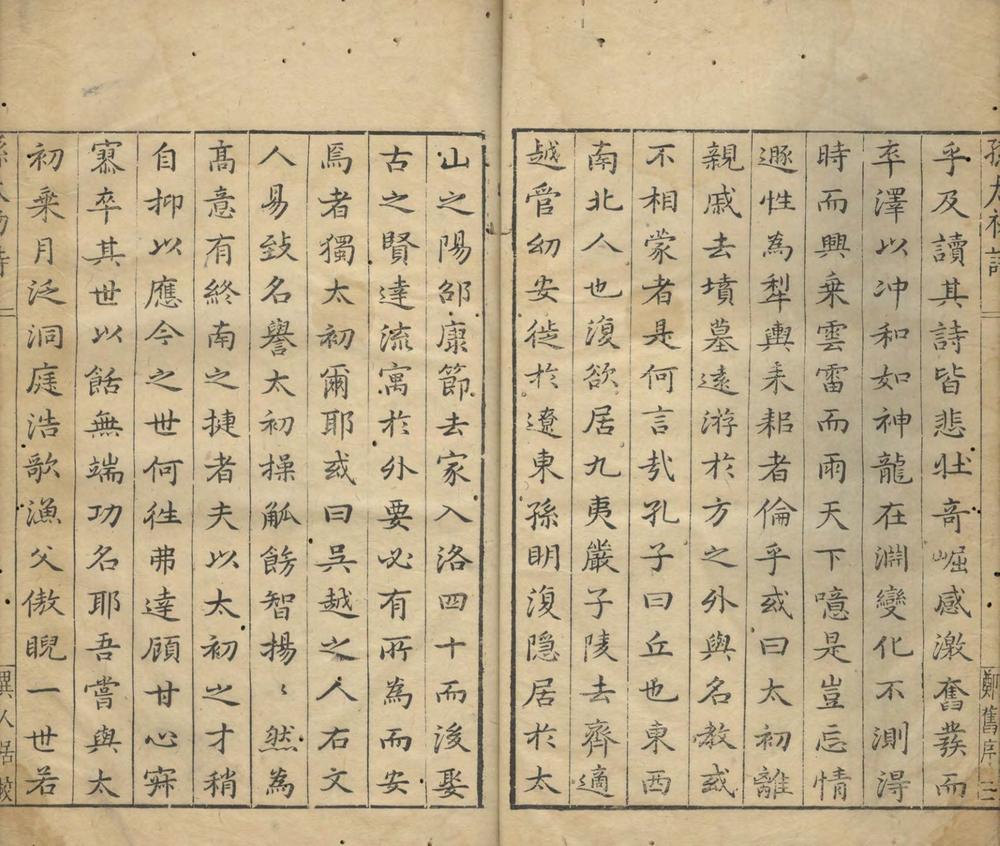 乎及讀其詩皆悲壯奇崛感激奮發而
卒澤以冲和如神龍在淵變化不測得
時而興乗雲雷而雨天下噫是豈忘情
遯性為犁輿耒耜者倫乎或曰太初離
親戚去墳墓遠游於方之外與名教或
不相蒙者是何言㢤孔子曰丘也東西
南北人也復欲居九夷嚴子陵去齊適
越管幼安徙於遼東孫明復隐居於太
山之陽邵康節去家入洛四十而後娶
古之賢達流寓於外要必有所為而安
焉者獨太初爾耶或曰吳越之人右文
人易致名譽太初操觚飭智揚〻然為
高意有終南之捷者夫以太初之才稍
自抑以應今之世何徃弗達顧甘心寂
寡卒其世以餂無端功名耶吾嘗與太
初乗月泛洞庭浩歌漁父傲睨一世若
鄭舊序
三
二